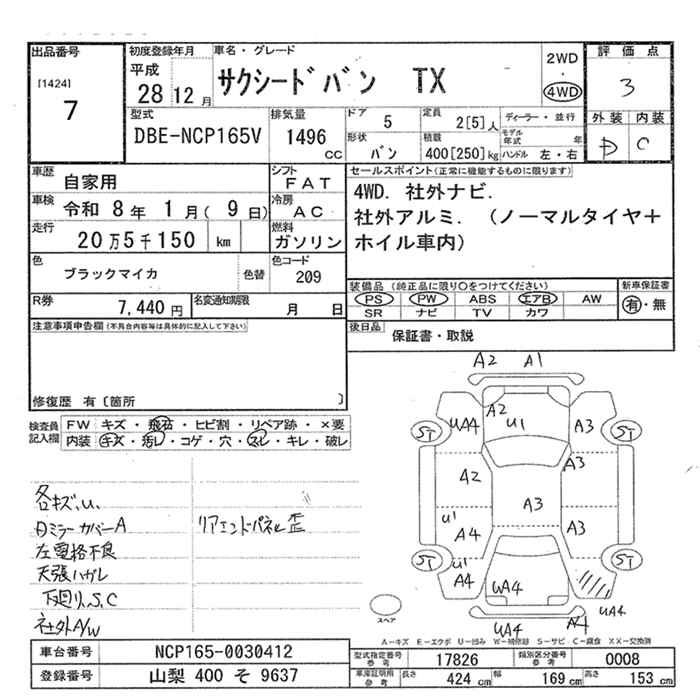 出品番号
[1424]
7
初度登録年月
平成
28年 12月
車名・グレード
サクシードバン TX
2WD
・
4WD
評価点
3
型式
DBE-NCP165V
排気量
1496
cc
ドア
5
定員
2[5]人
ディーラー・並行
モデル年式
年
形状
バン
積載
400[250]kg
ハンドル 左・右
外装 内装
D C
車歴
自家用
シフト
FAT
車検
令和 8年 1月( 9日)
冷房
AC
走行
20万5千150 km
燃料
ガソリン
色
ブラックマイカ
色替
色コード
209
R券
7,440円
名変通知期限
月 日
セールスポイント(正常に機能するものに限ります)
4WD. 社外ナビ.
社外アルミ. (ノーマルタイヤ+
ホイル車内)
装備品(純正品に限り○をつけてください)
PS PW ABS エアB AW
SR ナビ TV カワ
新車保証書
有・無
後日品
保証書・取説
注意事項申告欄(不具合内容等は具体的に記入して下さい)
修復歴 有〔箇所 〕
検査員
記入欄
FW キズ・飛石・ヒビ割・リペア跡・×要
内装 キズ・汚レ・コゲ・穴・スレ・キレ・破レ
各キズ.u.
日ミラーカバーA
左電格不良
天張ハガレ
下廻り.S.C
社外A/W
リアエンドパネル歪
A2 A1
A2
UA4 U1 A3
ST ST
A2 A3
A3
U1
A4 A3
ST ST
U1
A4 UA4
UA4
UA4 A4
スペア
A-キズ E-エクボ U-凹み W-補修跡 S-サビ C-腐食 XX-交換済
車台番号
NCP165-0030412
登録番号
山梨 400 そ 9637
型式指定番号
参考
17826
類別区分番号
参考
0008
車庫証明用
参考
長さ
424 cm
幅
169 cm
高さ
153 cm